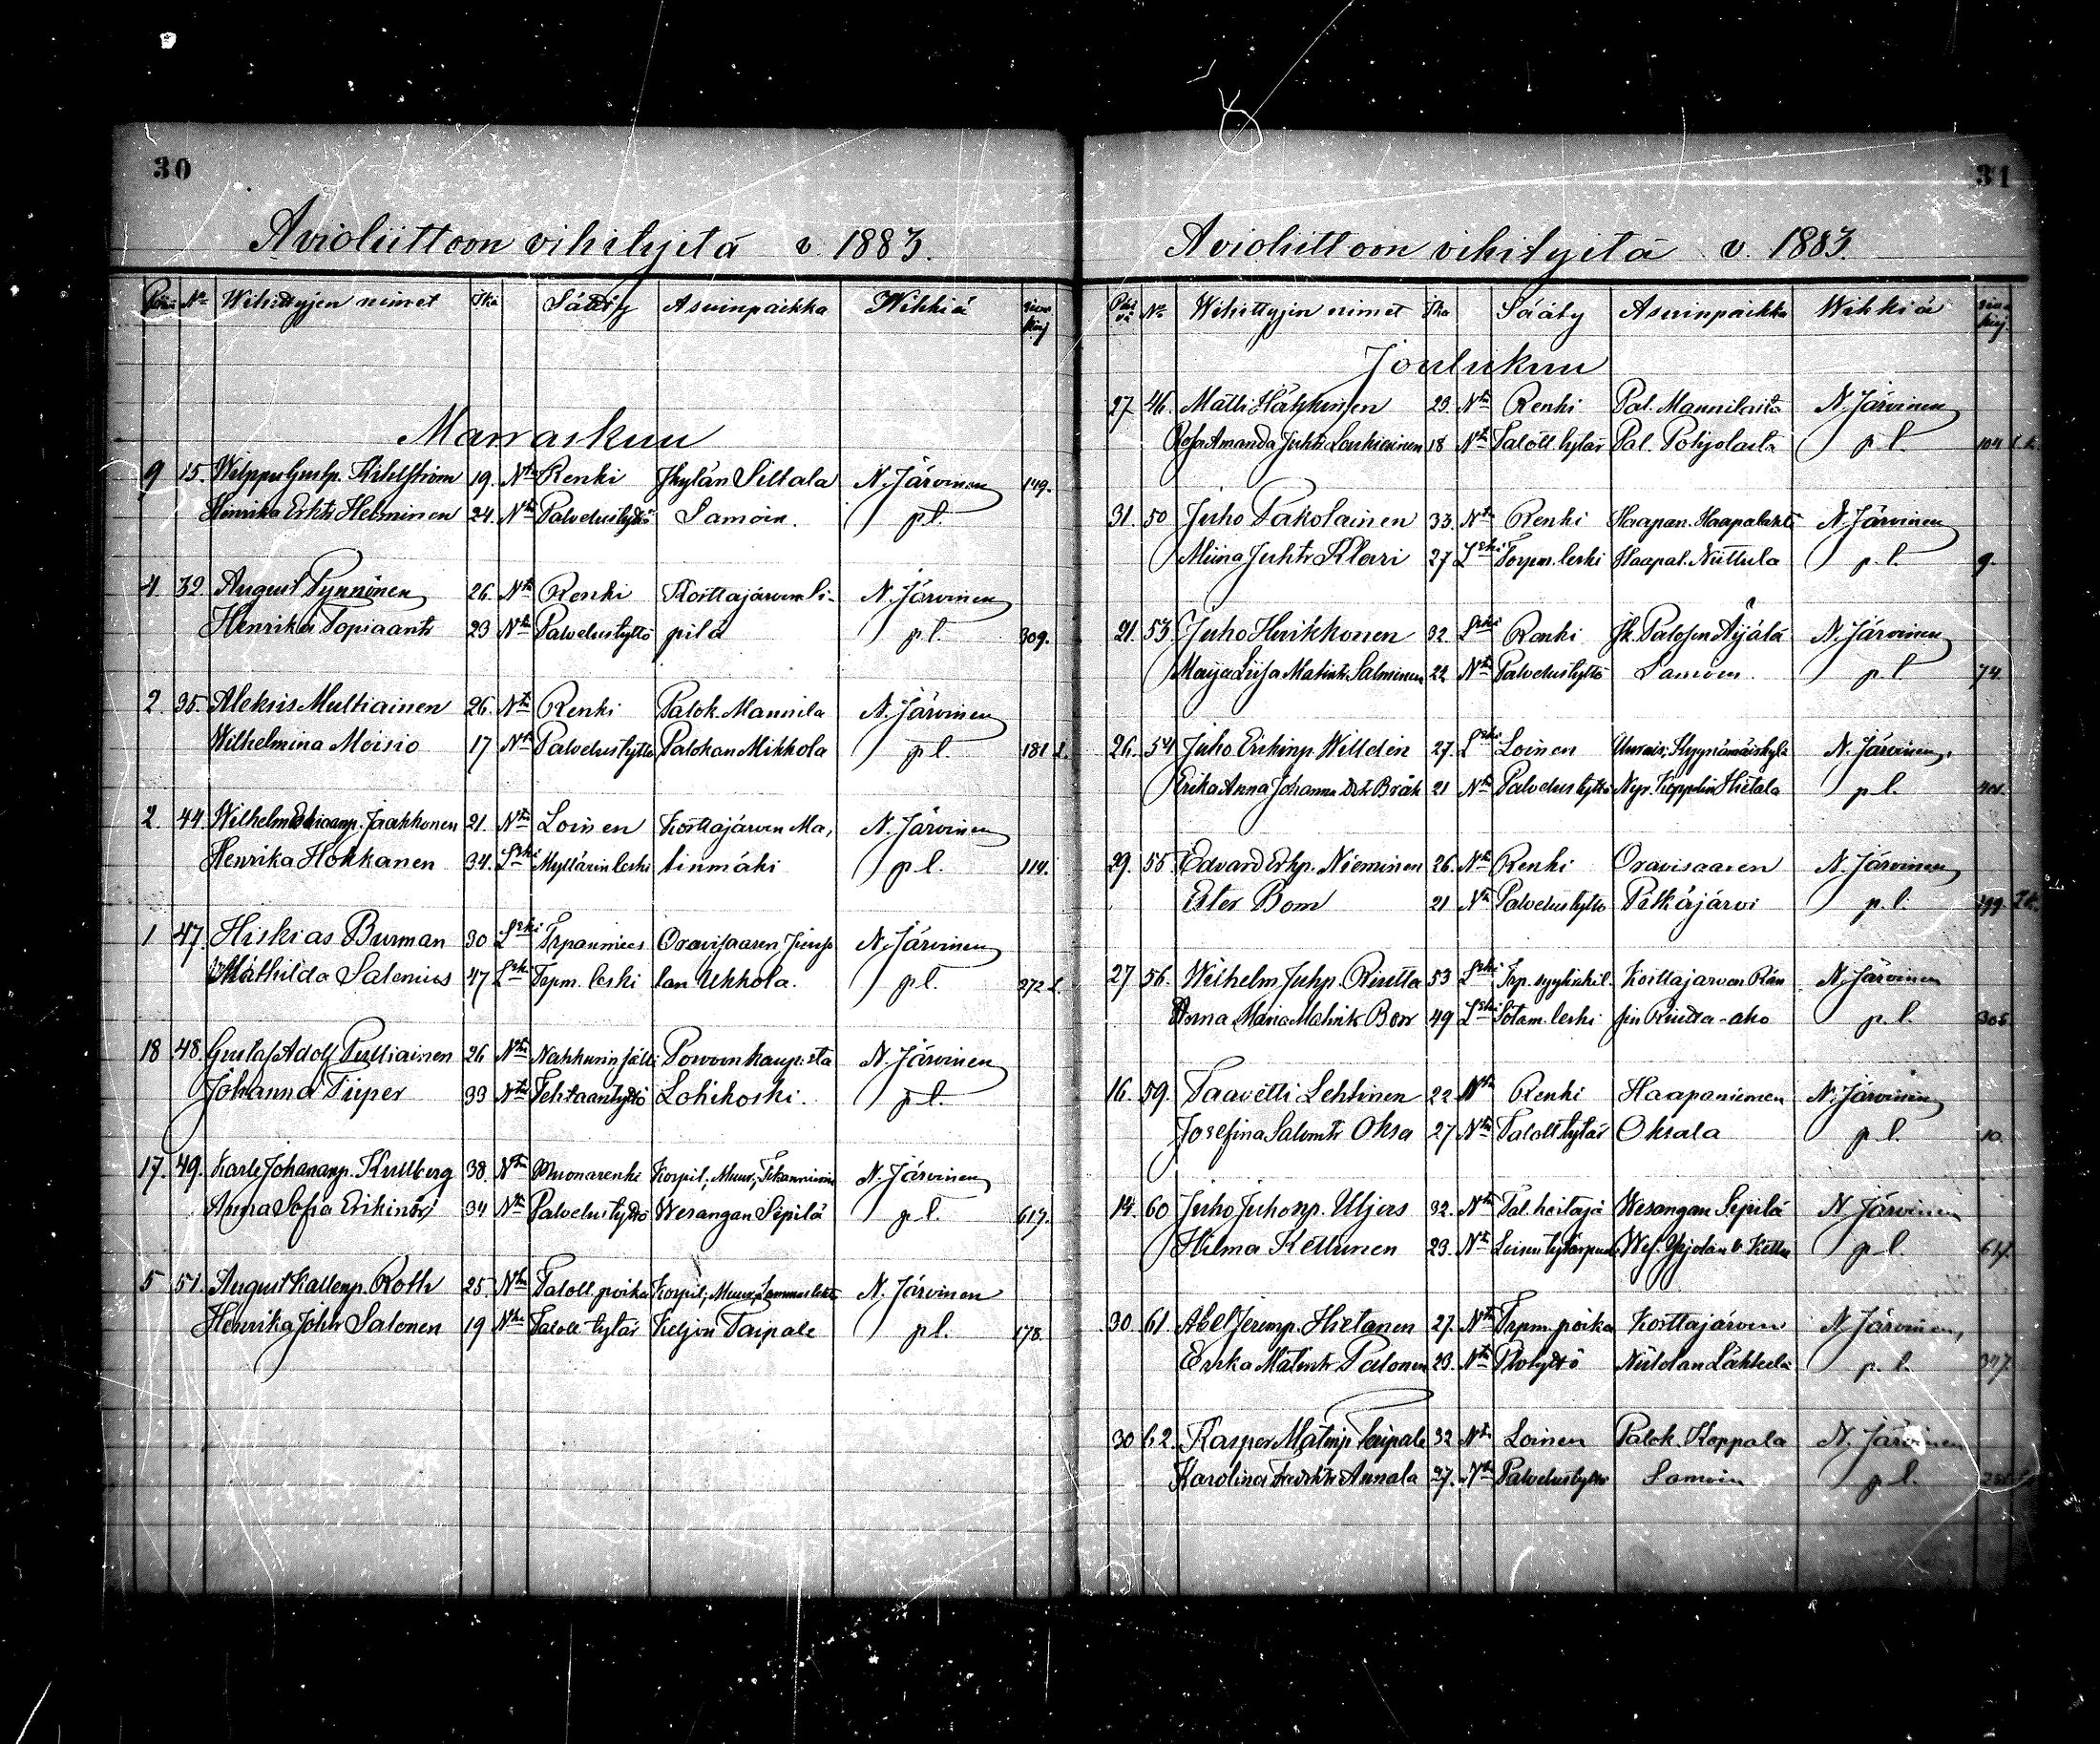 30
Avioliittoon vihityitä v. 1883.
Päivä No Wihittyjen nimet Ikä Sääty Asuinpaikka Wihkiä
Marraskuu
9 15. Wilppu Gustp. Kihlström 19. Ntn Renki Jkylän Siltala N. Järvinen 149.
Henrika Erktr Helminen 24. Ntn Palvelustyttö Samoin. p.l.
4 32 August Pynnönen 26. Ntn Renki Korttajärven Si- N. Järvinen
Henrika Topiaantr 23 Ntn Palvelustyttö pilä p.l. 309.
2. 35. Aleksis Multiainen 26. Ntn Renki Palok. Mannila N. Järvinen
Wilhelmina Moisio 17 Ntn Palvelustyttö Palokan Mikkola p.l. 181 l.
2. 44 Wilhelm Jaakkonen 21. Ntn Loinen Korttajärven Ma, N. Järvinen
Henrika Hokkanen 34. Leski Myllärin leski tinmäki p.l. 114.
1 47 Hiskias Burman 30 Leski Trpanmies Oravisaaren N. Järvinen
Mathilda Salenius 47 Leski Torpm. leski lan Ukkola. p.l. 272 l.
18 48. Gustaf Adolf Pulliainen 26 Ntn Nahkurin sälli Porvoon kaup:sta N. Järvinen
Johanna Piiper 33 Ntn Tehtaantyttö Lohikoski. p.l.
17. 49. Karle Johananp. Kullberg 38. Ntn Muonarenki Korpil; Muur; N. Järvinen
Anna Sofia Erikintr 34 Ntn Palvelustyttö Wesangan Sepilä p.l. 617.
5 51. August Kallenp. Roth 25. Ntn Taloll. poika Korpil; Muur; Lammaslahti N. Järvinen
Henrika Johtr Salonen 19 Ntn Taloll tytär Keljon Taipale p.l. 178.
31
Avioliittoon vihityitä v. 1883.
Päivä No Wihittyjen nimet Ikä Sääty Asuinpaikka Wihkiä
Joulukuu
27 46. Matti Häkkinen 23. Ntn Renki Pal. Mannilasta N. Järvinen
Rosa Amanda Juhtr 18 Ntn Taloll tytär Pal. Pohjolasta p.l. 104
31. 50 Juho Pakolainen 33. Ntn Renki Haapan. Haapalahti N. Järvinen
Miina Juhtr Klari 27 Leski Torpm. leski Haapal. Niittula p.l. 9.
21. 53. Juho Hirikkonen 32. Leski Renki Jk. Palosen Äijälä N. Järvinen
Maija Liisa Matintr Salminen 22 Ntn Palvelustyttö Samoin. p.l 74.
26. 54 Juho Erikinp. Willdin 27. Leski Loinen N. Järvinen,
Erika Anna Johanna Bräk 21 Ntn Palvelustyttö Hietala p.l.
29. 55 Edvard Erkp. Nieminen 26. Ntn Renki Oravisaaren N. Järvinen
Ester Bom 21 Ntn Palvelustyttö Pitkäjärvi p.l. 199.
27 56. Wilhelm Juhp. Rinetta 53 Leski Korttajärven Rän N. Järvinen
Anna Maria Matintr Borr 49 Leski Sotam. leski sin Rinetta-aho p.l. 305.
16. 59. Taavetti Lehtinen 22 Ntn Renki Haapaniemen N. Järvinen
Josefina Salomtr Oksa 27 Ntn Taloll tytär Oksala p.l. 10.
14. 60 Juho Juhonp. Uljas 32. Ntn Tal. hoitaja Wesangan Sepilä N. Järvinen
Hilma Kettunen 23. Ntn Loisen p.l. 617.
30 61 Abel Jeremp. Hietanen 27. Ntn Trpm. poika Korttajärven N. Järvinen,
Erika Matintr Palonen 23. Ntn Plvtyttö Niilolan Läkkelä p.l. 347.
30 62. Kasper Matinp. Taipale 32 Ntn Loinen Palok. Koppala N. Järvinen
Karolina Fredrktr Annala 27. Ntn Palvelustyttö Samoin p.l.